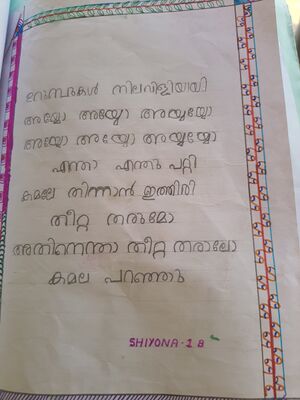 ഉറുമ്പുകൾ നിലവിളിയായി
അയ്യോ അയ്യോ അയ്യയ്യോ
അയ്യോ അയ്യോ അയ്യയ്യോ
എന്താ എന്തു പറ്റി
കമലേ തിന്നാൻ ഇത്തിരി
തീറ്റ തരുമോ
അതിനെന്താ തീറ്റ തരാലോ
കമല പറഞ്ഞു
SHIYONA - 2 B